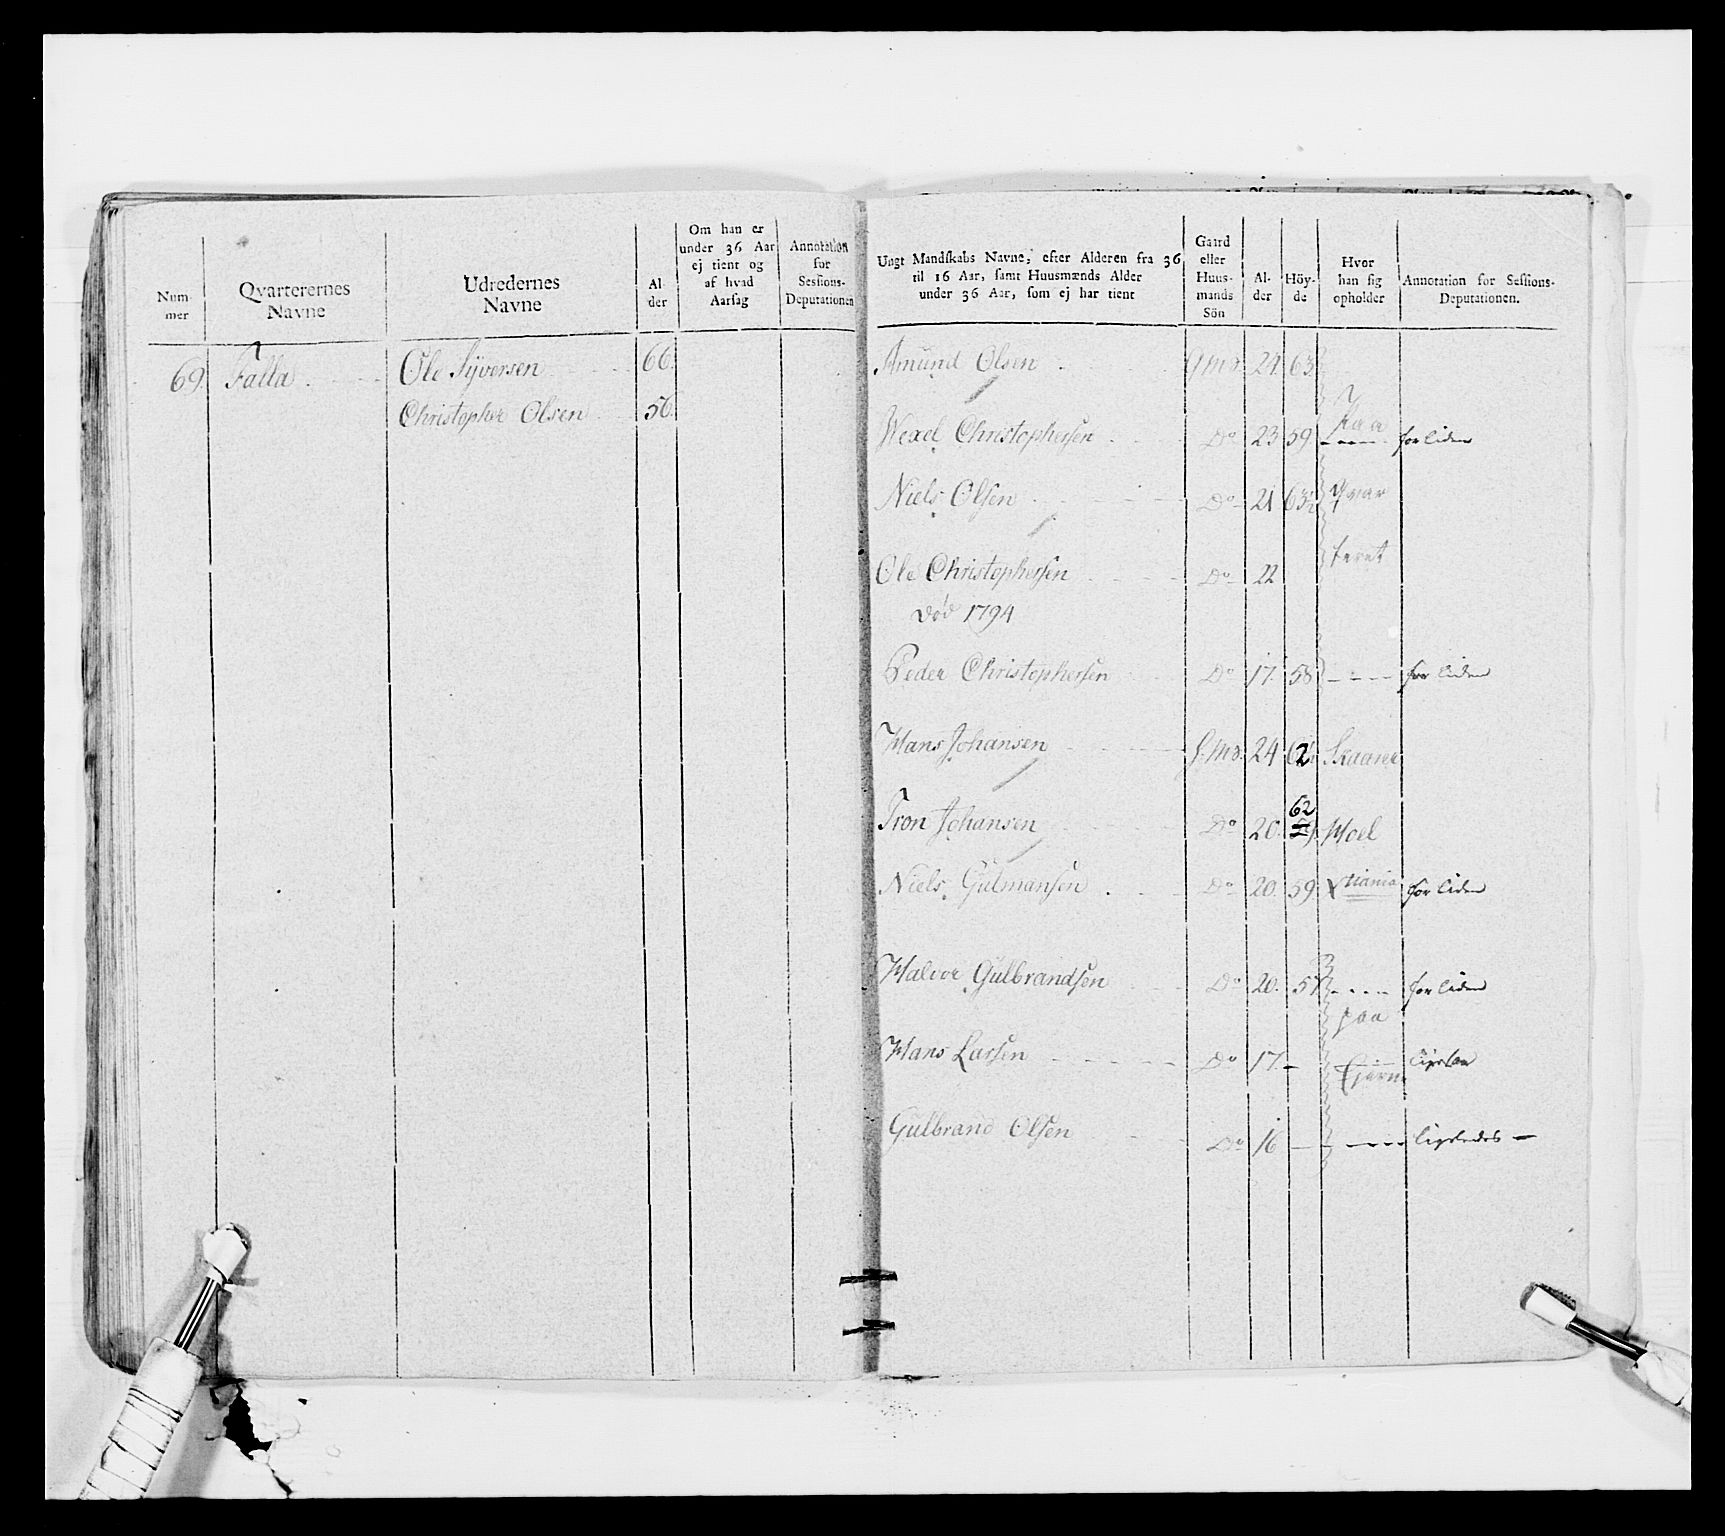 Num-
mer
Qvarterernes
Navne
Udredernes
Navne
Al-
der
Om han er
under 36 Aar
ej tient og
af hvad
Aarsag
Annotation
for
Sessions-
Deputationen
69. Falla Ole Syversen 66.
Christopher Olsen 56.
Ungt Mandskabs Navne, efter Alderen fra 36
til 16 Aar, samt Huusmænds Alder
under 36 Aar, som ej har tient
Gaard
eller
Huus-
mands
Sön
Al-
der
Höy-
de
Hvor
han sig
opholder
Annotation for Sessions-
Deputationen.
Amund Olsen 24. 63
Wexel Christophersen Do 23 59 Paa for liden
Niels Olsen Do 21 63½ Qvar
Ole Christophersen Do 22 teret
død 1794
Peder Christophersen Do 17. 58 for liden
Hans Johansen 24 62 Skaane
62
Tron Johansen Do 20. Moel
Niels Gulmansen Do 20. 59. Xtiania for liden
Halvor Gulbrandsen Do 20. 57 for liden
paa
Hans Larsen Do 17. –
Gulbrand Olsen Do 16 — ligeledes —